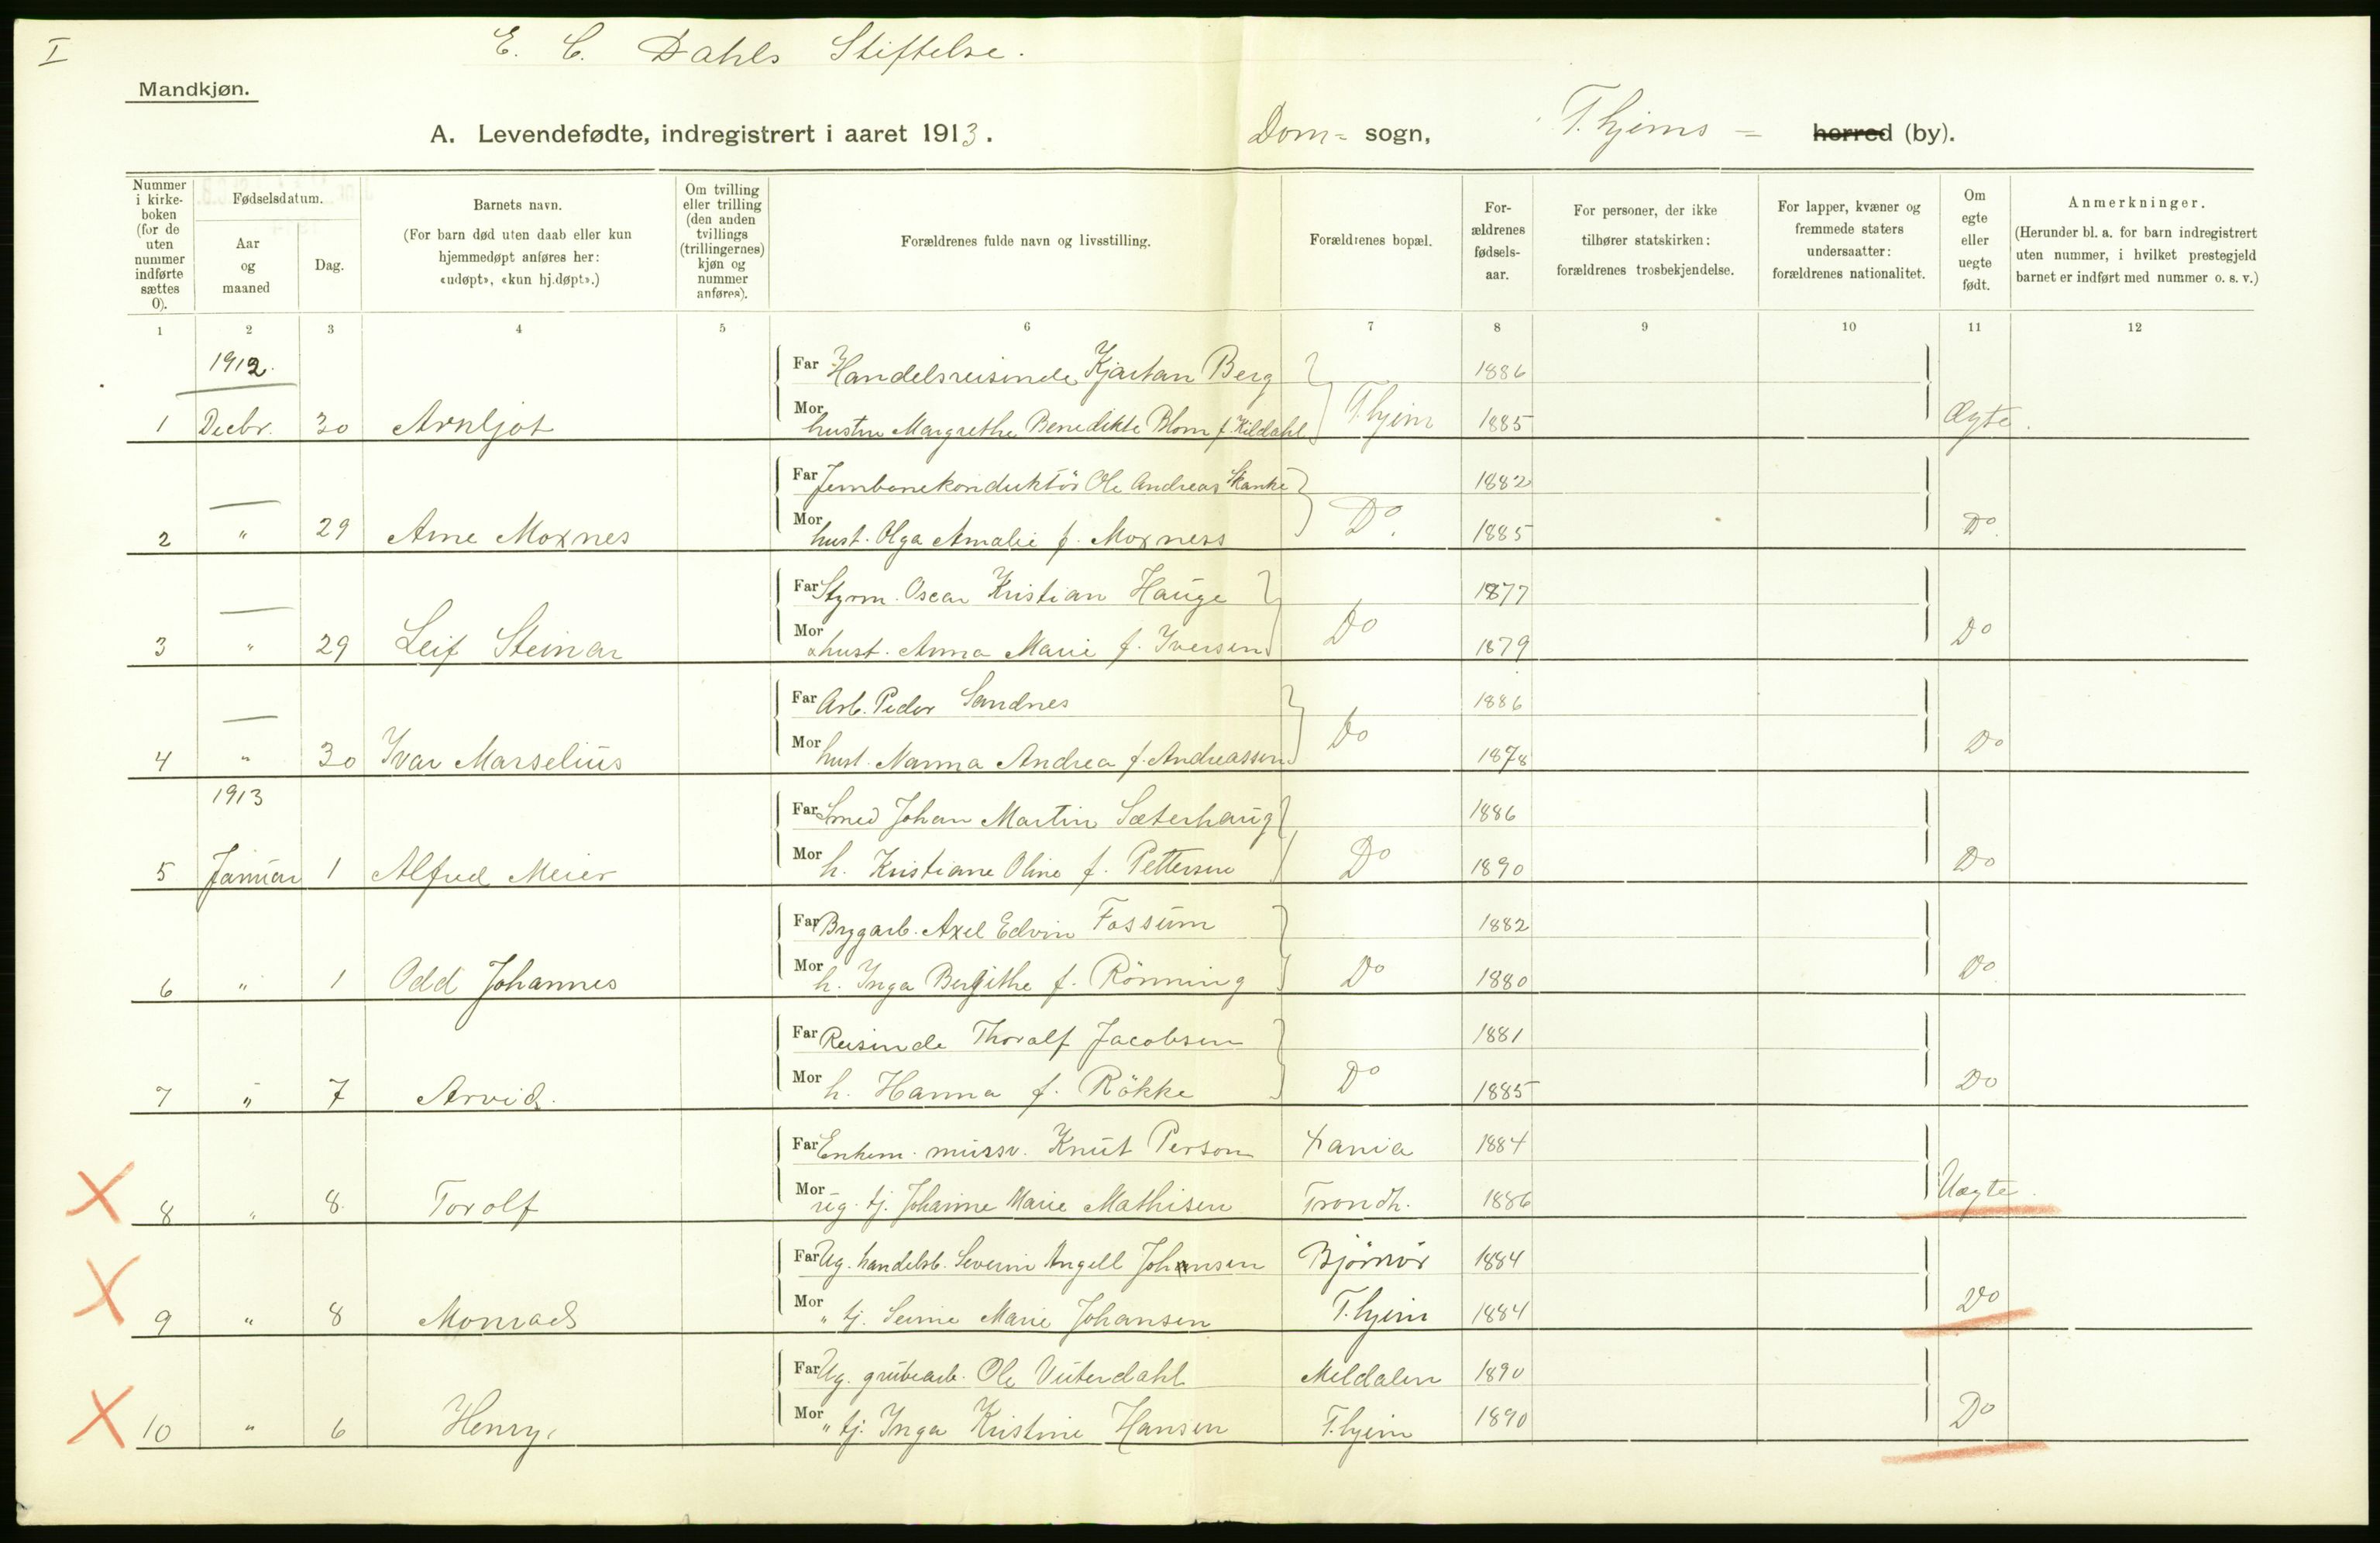 I
E. C. Dahls Stiftelse.
Mandkjøn.
A. Levendefødte, indregistrert i aaret 1913.
Dom= sogn,
T.hjems = herred (by).
Nummer i kirkeboken (for de uten nummer indførte sættes 0).
Fødselsdatum.
Aar og maaned
Dag.
Barnets navn.
(For barn død uten daab eller kun hjemmedøpt anføres her: «udøpt», «kun hj.døpt».)
Om tvilling eller trilling (den anden tvillings (trillingernes) kjøn og nummer anføres).
Forældrenes fulde navn og livsstilling.
Forældrenes bopæl.
For-ældrenes fødsels-aar.
For personer, der ikke tilhører statskirken: forældrenes trosbekjendelse.
For lapper, kvæner og fremmede staters undersaatter: forældrenes nationalitet.
Om egte eller uegte født.
Anmerkninger.
(Herunder bl. a. for barn indregistrert uten nummer, i hvilket prestegjeld barnet er indført med nummer o. s. v.)
1 2 3 4 5 6 7 8 9 10 11 12
1912.
Far Handelsreisende Kjartan Berg 1886
1 Decbr. 30 Arnljot Mor hustru Margrethe Benedikte Blom f. Kildahl T.hjem 1885 Ægte.
Far Jernbanekonduktör Ole Andreas Skanke 1882
2 " 29 Arne Moxnes Mor hust. Olga Amalie f. Moxness Do. 1885 Do.
Far Styrm. Oscar Kristian Hauge 1877
3 " 29 Leif Steinar Mor hust. Anna Marie f. Iversen Do 1879 Do
Far Arb. Peder Sandnes 1886
4 " 30 Ivar Marselius Mor hust. Nanna Andrea f. Andreassen Do 1878 Do
1913
Far Smed Johan Martin Sæterhaug 1886
5 Januar 1 Alfred Meier Mor h. Kristiane Oline f. Pettersen Do 1890 Do
Far Brygarb. Axel Edvin Fossum 1882
6 " 1 Odd Johannes Mor h. Inga Bergithe f. Rönning Do 1880 Do
Far Reisende Thoralf Jacobsen 1881
7 " 7 Arvid. Mor h. Hanna f. Rökke Do 1885 Do
Far Enkem. Knut Person Xania 1884
8 " 8. Torolf Mor ug. tj. Johanne Marie Mathisen Trondh. 1886 Uægte.
Far Ug. handelsb. Severin Angell Johansen Björnör 1884
9 " 8 Monrad Mor " tj. Serine Marie Johansen T.hjem 1884 Do
Far Ug. grubearb. Ole Vuterdahl Meldalen 1890
10 " 6 Henry. Mor " tj. Inga Kristine Hansen T.hjem 1890 Do